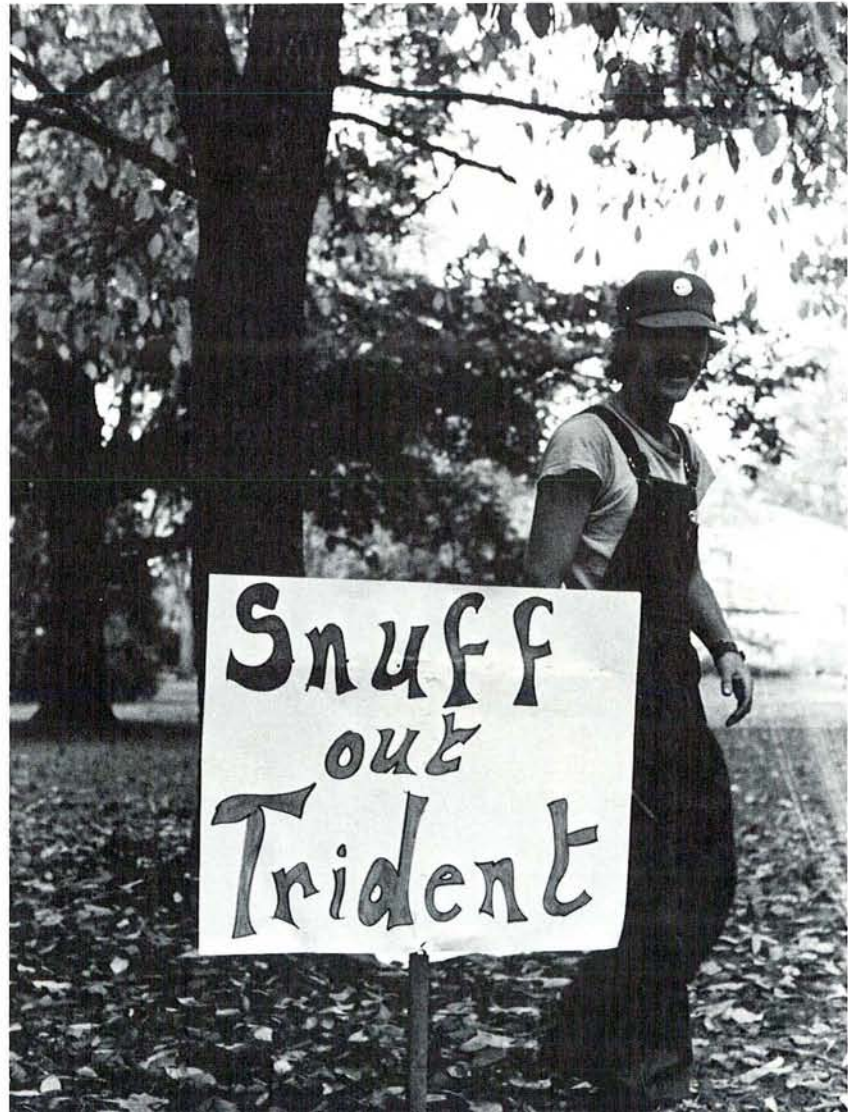 Snuff
out
Trident